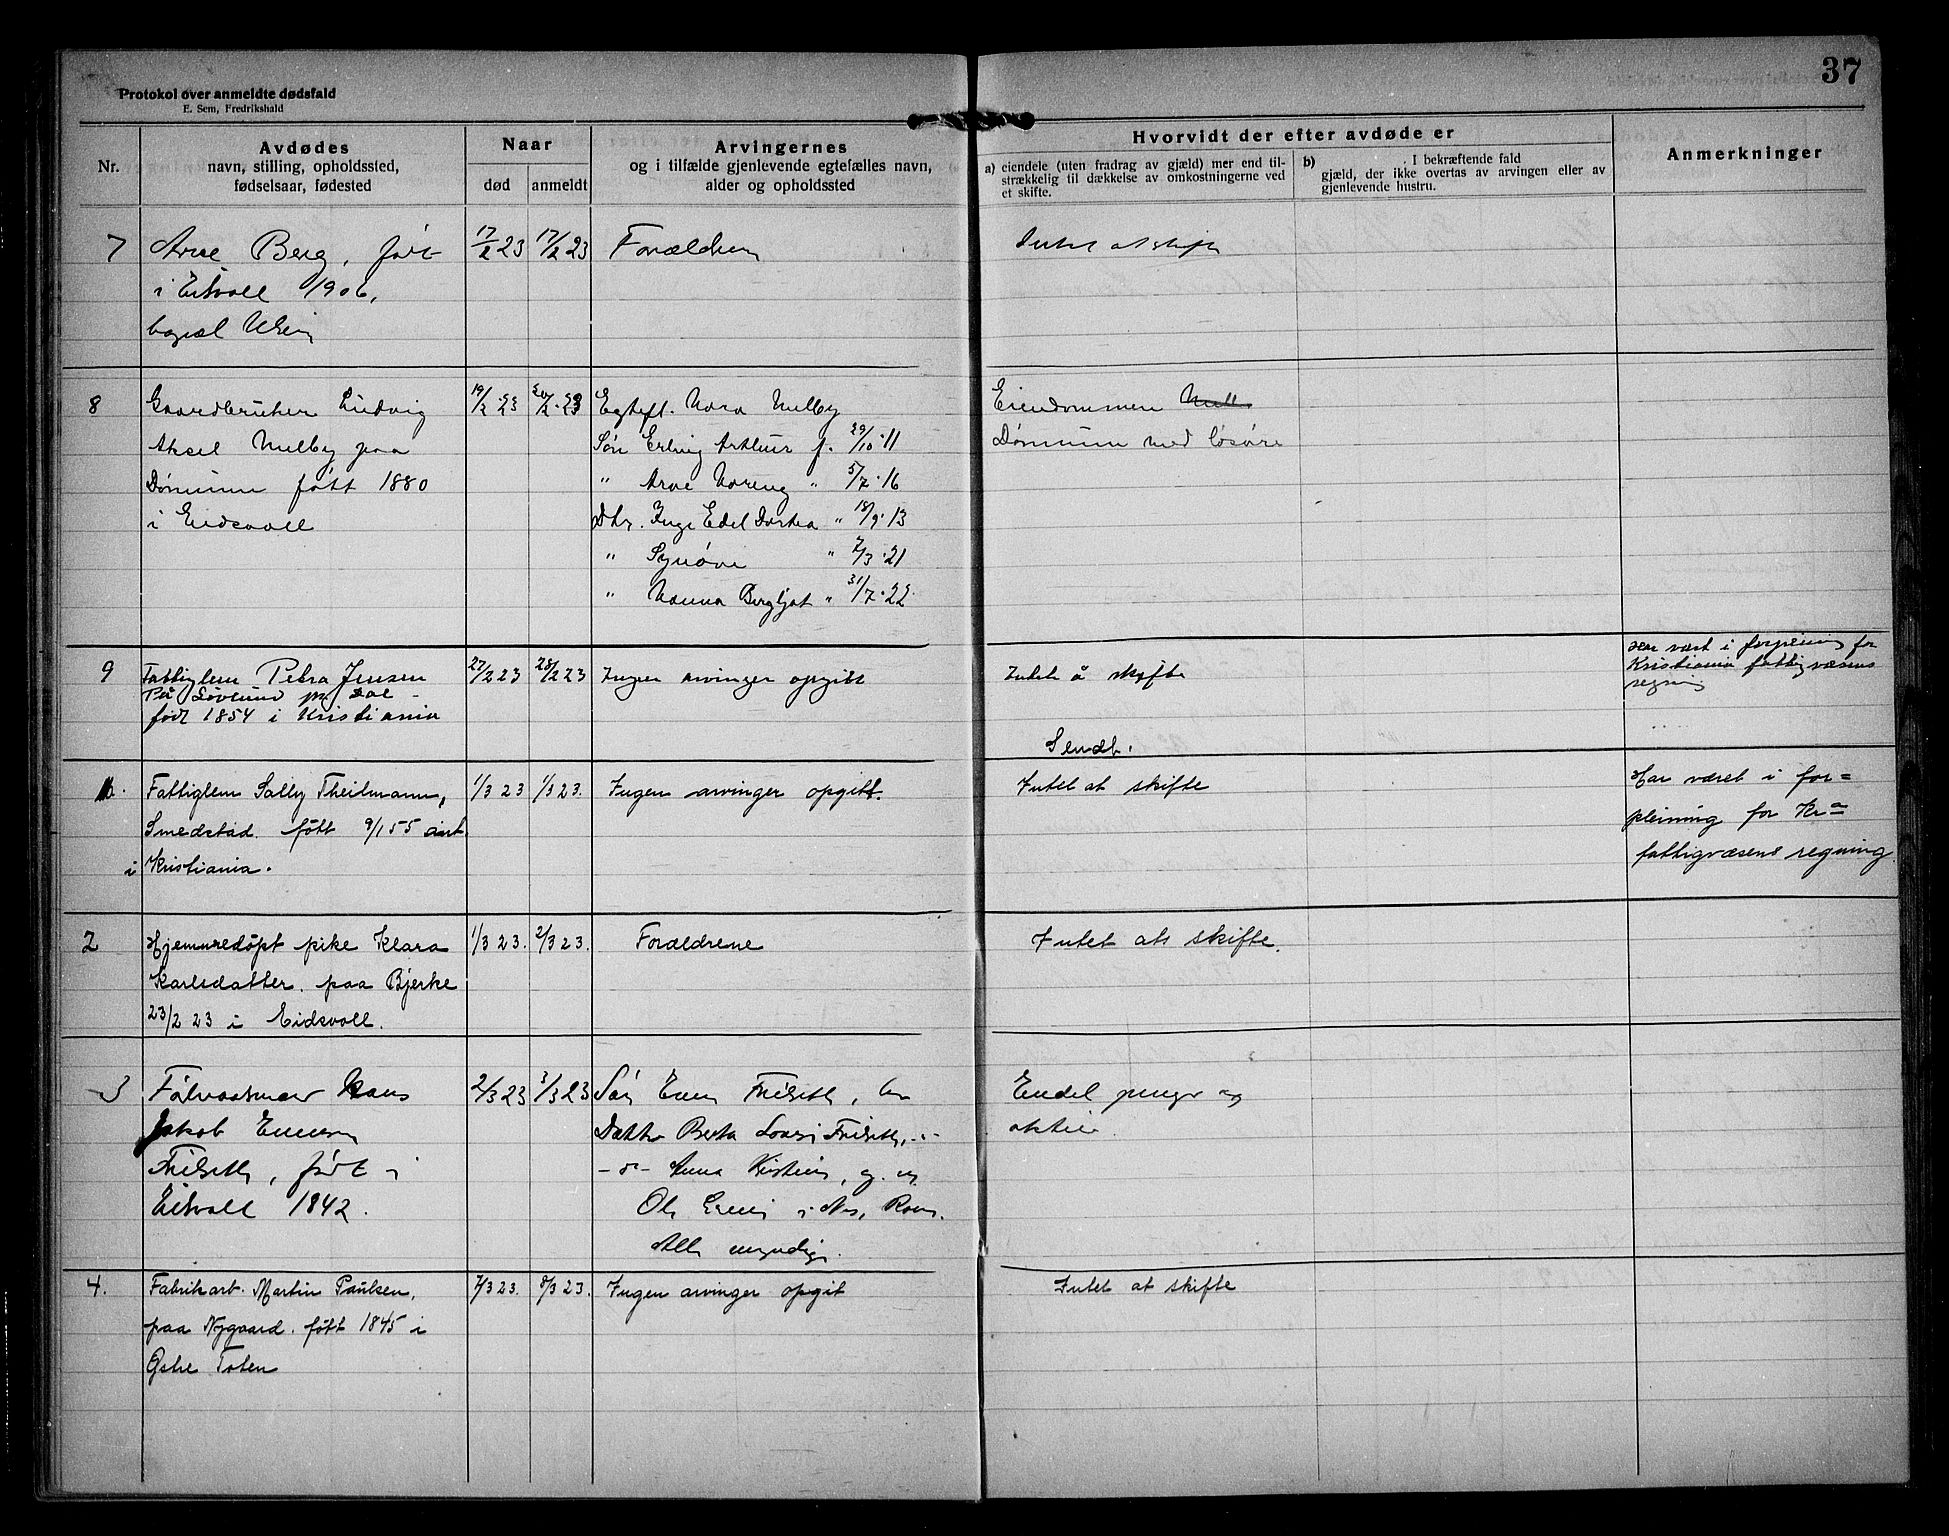 37
Protokol over anmeldte dødsfald
E. Sem, Fredrikshald
Nr.
Avdødes
navn, stilling, opholdssted,
fødselsaar, fødested
Naar
død
anmeldt
Arvingernes
og i tilfælde gjenlevende egtefælles navn,
alder og opholdssted
Hvorvidt der efter avdøde er
a) eiendele (uten fradrag av gjæld) mer end til-
strækkelig til dækkelse av omkostningerne ved
et skifte.
b) . I bekræftende fald
gjæld, der ikke overtas av arvingen eller av
gjenlevende hustru.
Anmerkninger
7
Arne Berg, født
i Eidsvoll 1906,
17/2 23
17/2 23
Forældrene
Intet at skifte
8
Gaardbruker Ludvig
Aksel Melby paa
Dønnum født 1880
i Eidsvoll
19/2 · 23
20/2 · 23
Egtef. Nora Melby
Søn Erling Arthur f. 29/10 · 11
" Arve Noreng " 5/7 · 16
Dtr. Inge Edel Dortea " 18/9 · 13
" Synøve " 7/3 · 21
" Nanna Bergljot " 31/7 · 22
Eiendommen
Dønnum med løsøre
9
Fattiglem Petra Jensen
På Løvlund pr Dal -
født 1854 i Kristiania
27/2 23
28/2 23
Ingen arvinger opgitt
Intet å skifte
Sendt.
Har vært i forpleining for
Kristiania fattigvæsens
regning
1.
Fattiglem Sally Theilmann,
Smedstad. født 9/1 55
i Kristiania.
1/3 23
1/3 23.
Ingen arvinger opgitt.
Intet at skifte
Har været i for=
pleining for Kra=
fattigvæsens regning.
2
Hjemmedøpt pike Klara
Karlsdatter. paa Bjerke
23/2 23 i Eidsvoll.
1/3 23.
2/3 23.
Forældrene
Intet at skifte.
3
Følvaatsmand Hans
Jakob Evensen
Frilseth, født i
Eidsvoll 1842.
2/3 23
3/3 23
Søn Even Frilseth,
Datter Berta Lovise Frilseth, -"-
- " - Anna Kristine, g. m.
Ole Erning i Nes, Rom.
Alle myndige.
Endel penge og
aktier.
4.
Fabrikarb. Martin Paulsen,
paa Nygaard. født 1845 i
Østre Toten
7/3 23.
8/3 23.
Ingen arvinger opgit
Intet at skifte